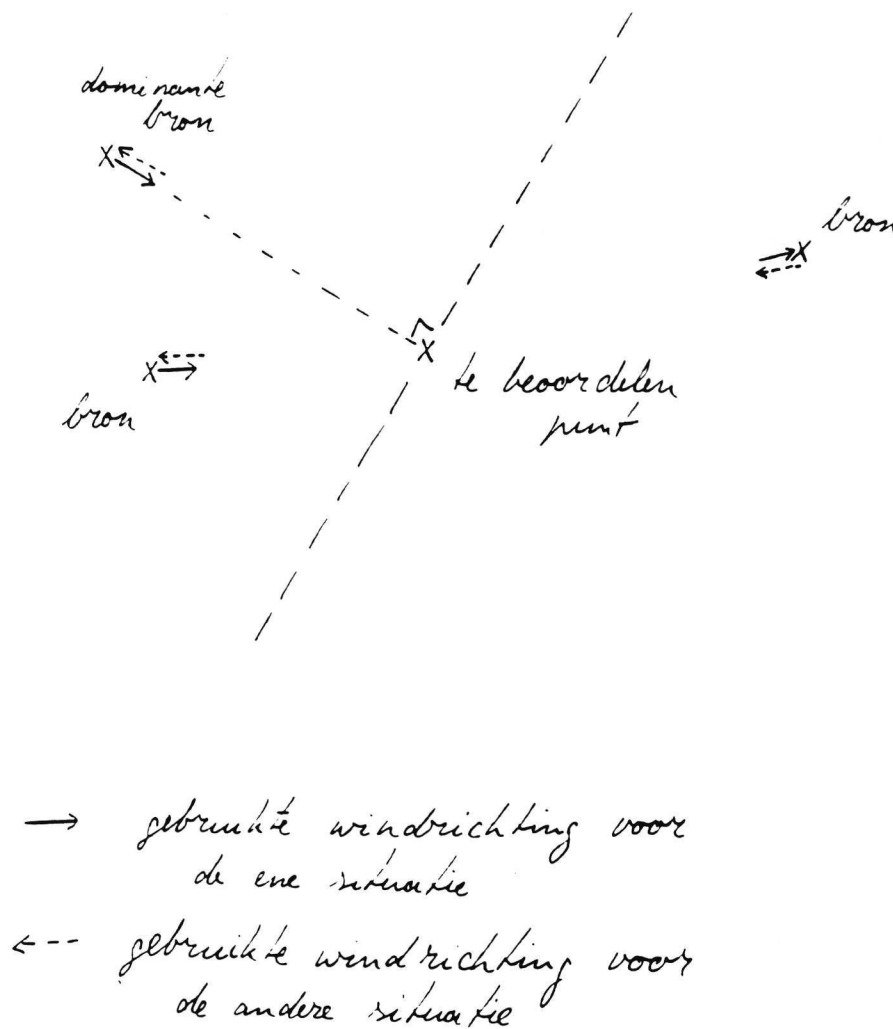 dominante
bron
bron
te beoordelen
punt
bron
gebruikte windrichting voor
de ene situatie
gebruikte windrichting voor
de andere situatie